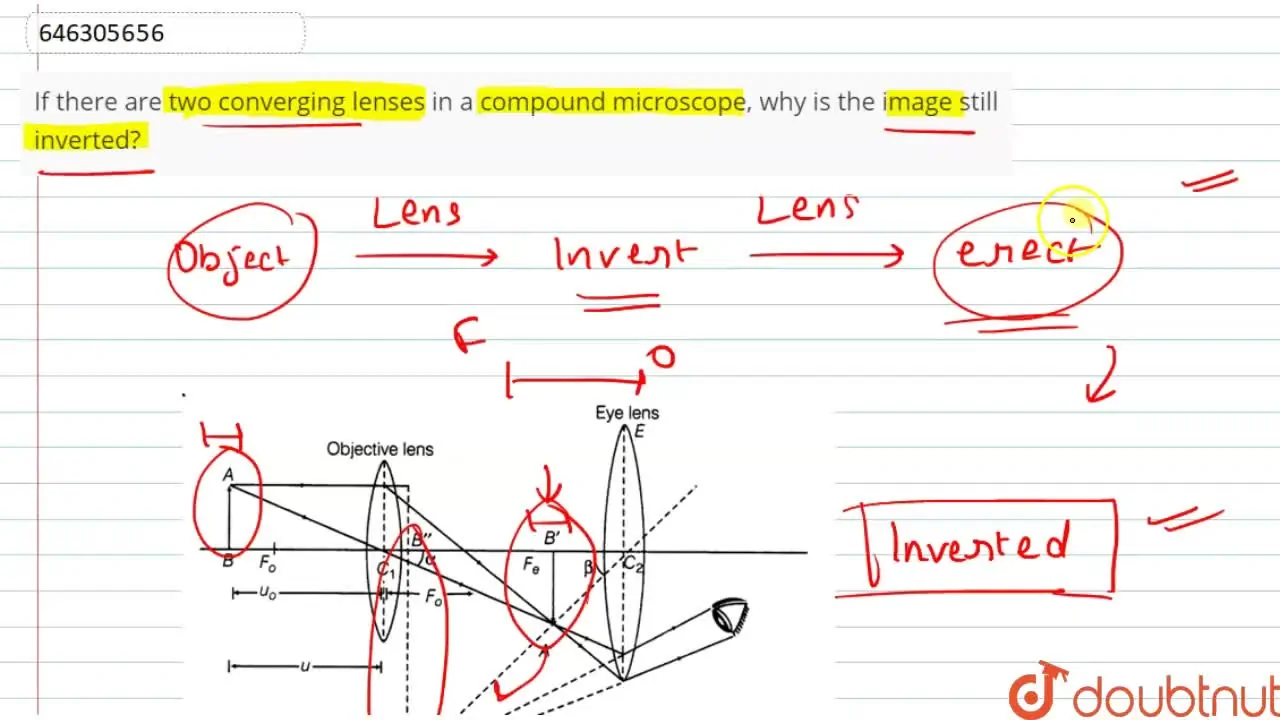 646305656
If there are two converging lenses in a compound microscope, why is the image still
inverted?
Lens Lens
Object Invert erect
F O
Eye lens
E
Objective lens
A
B' B''
B Fo C1 α Fe β C2
uo Fo
A'
u
Inverted
doubtnut